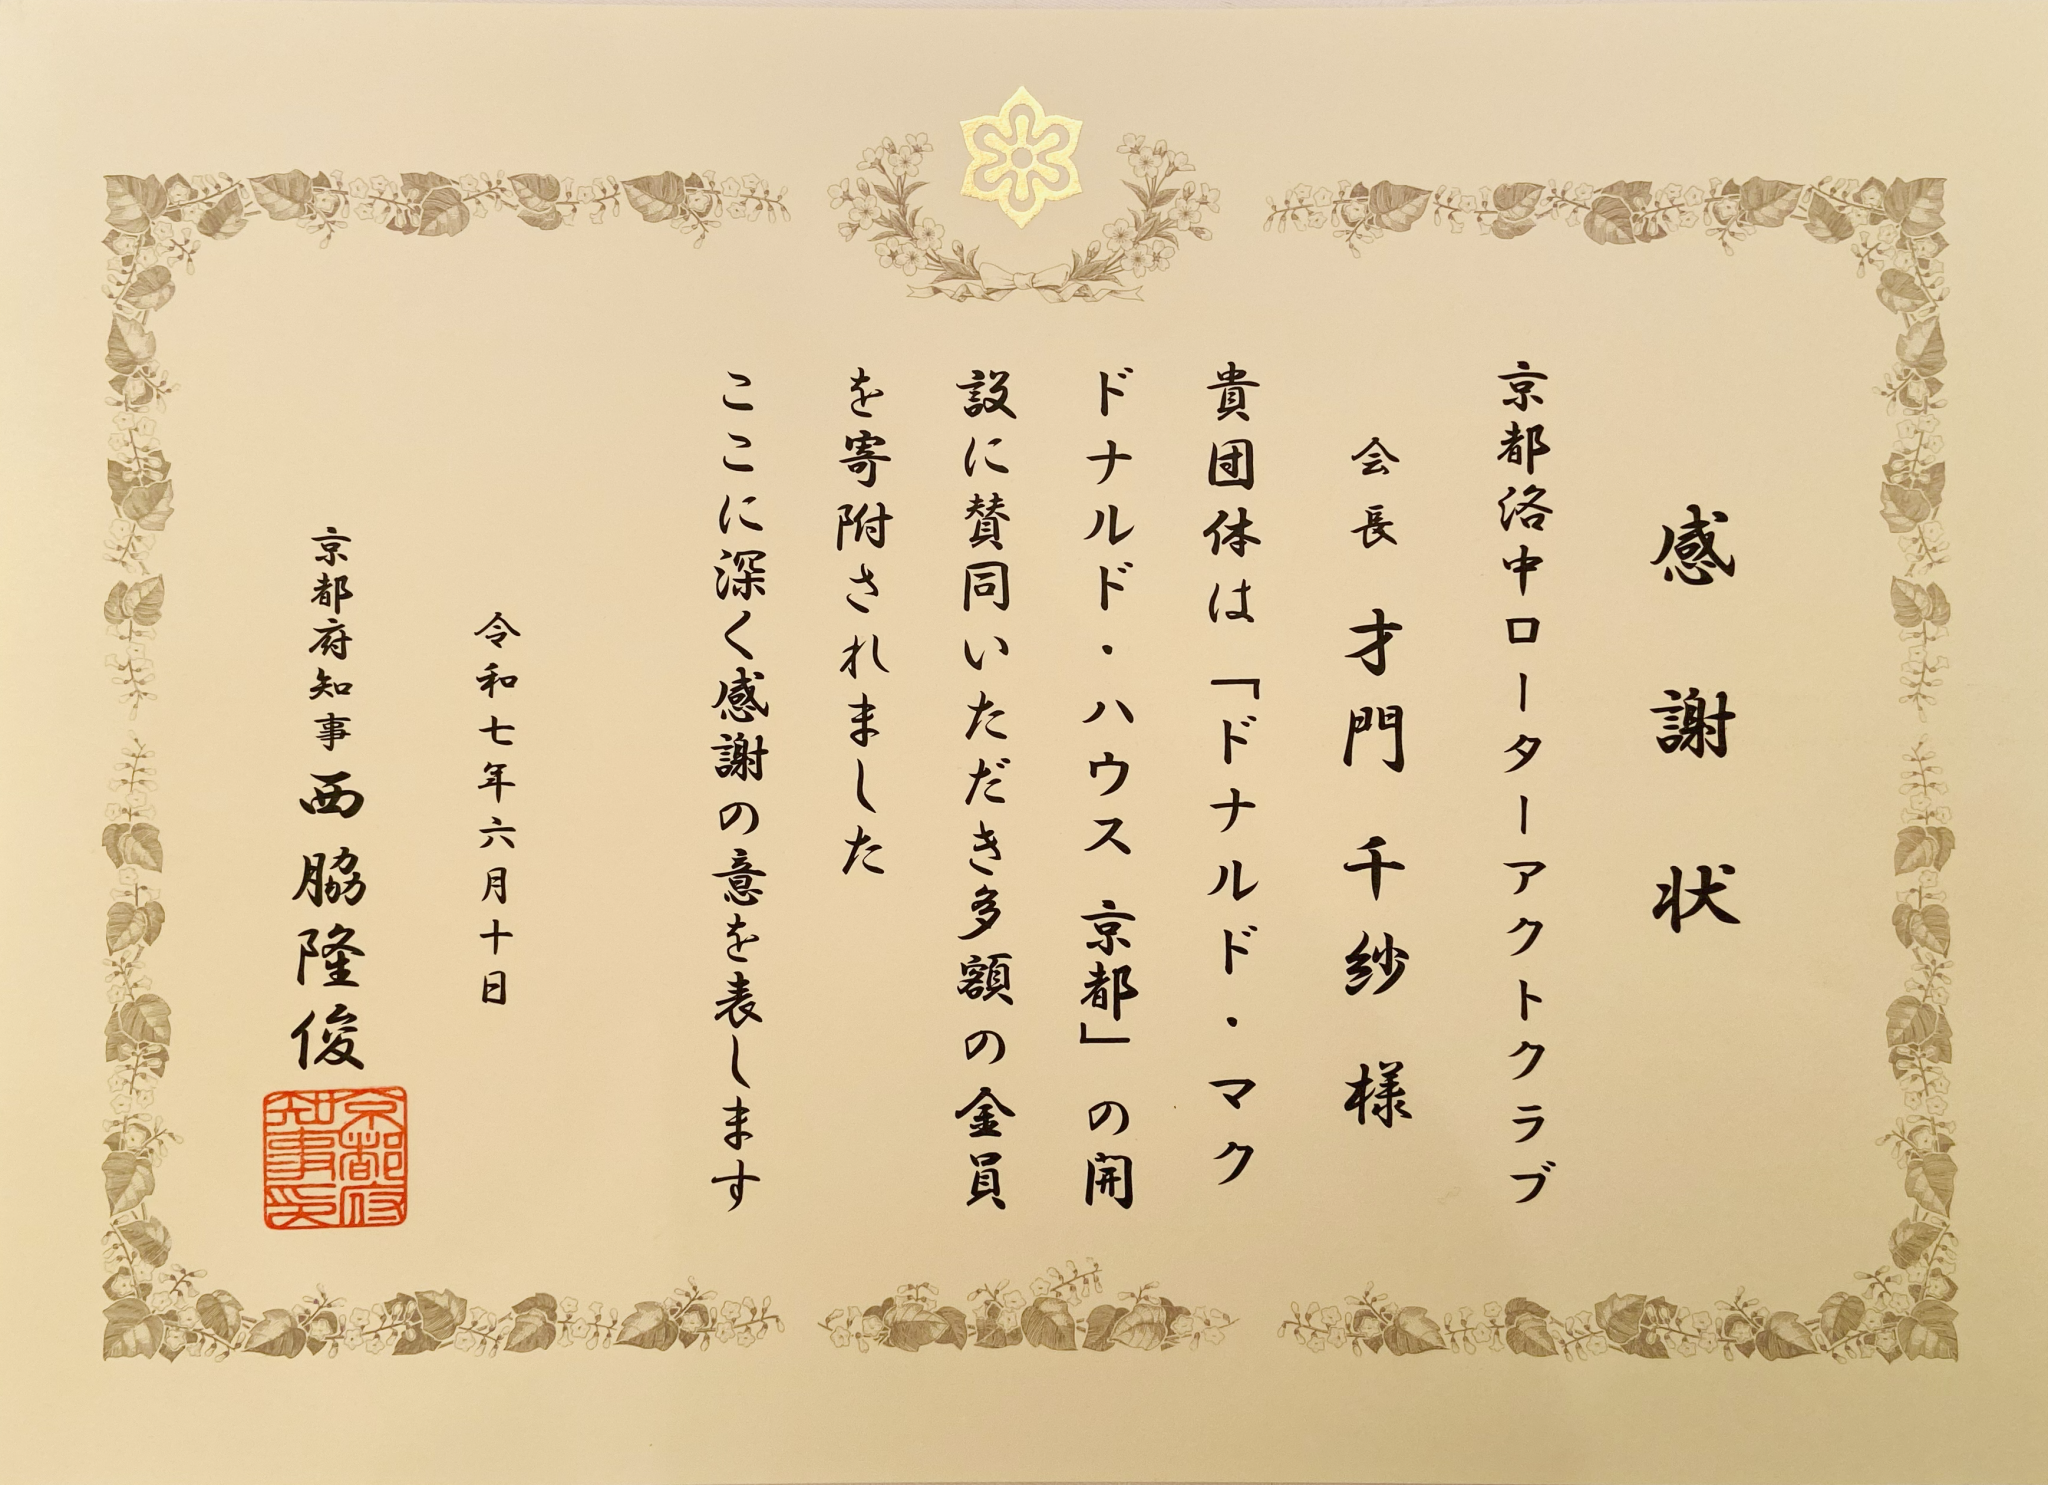 感謝状
京都洛中ローターアクトクラブ
会長 才門 千紗 様
貴団体は「ドナルド・マク
ドナルド・ハウス 京都」の開
設に賛同いただき多額の金員
を寄附されました
ここに深く感謝の意を表します
令和七年六月十日
京都府知事 西脇隆俊
京都府
知事印